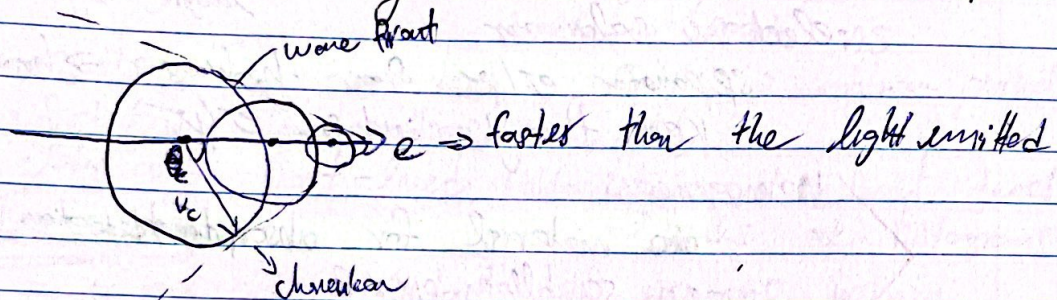 wave front
e ⇒ faster than the light emitted
θc
Vc
chrenkov